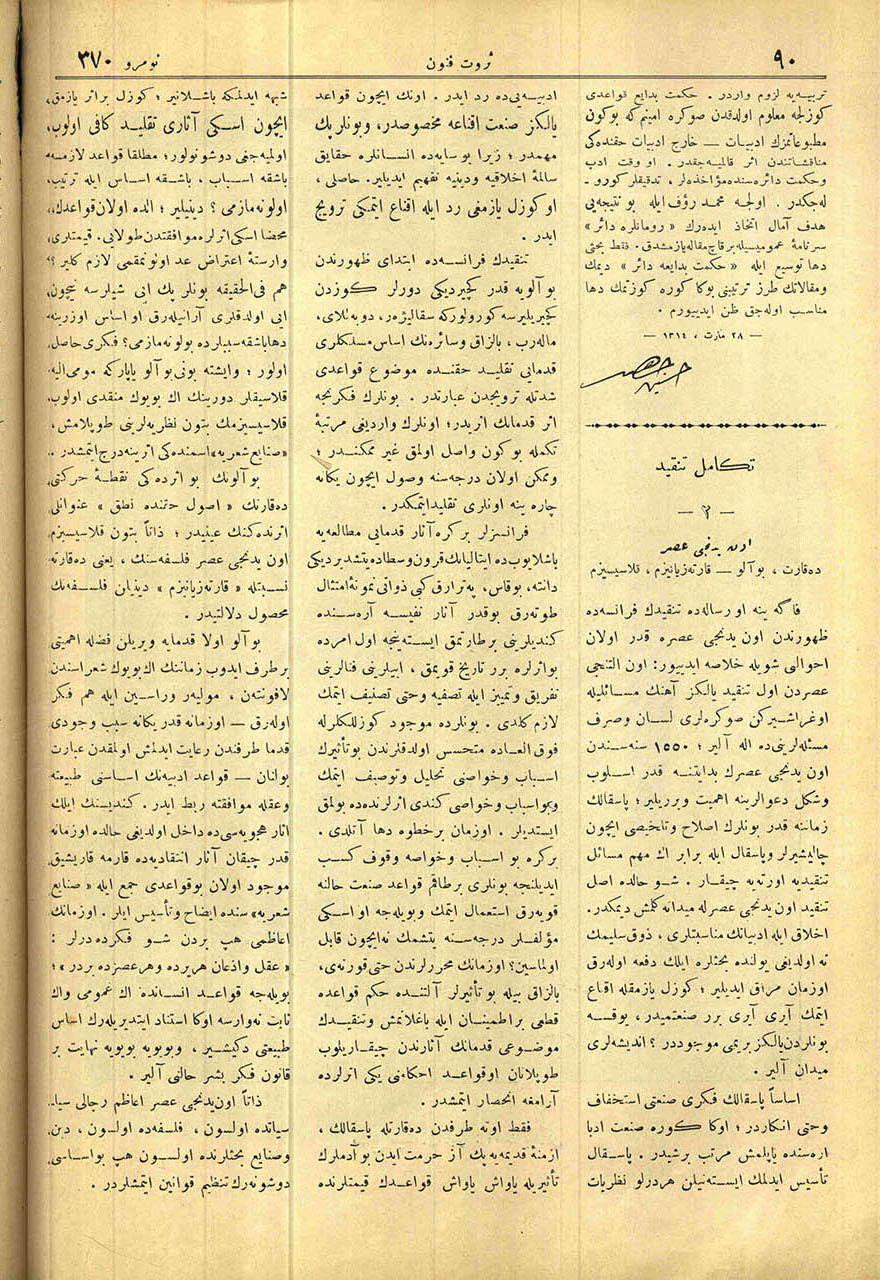 ٩٠
ثروت فنون
نومرو ٣٧٠
تربیه‌یه لزوم واردر . حکمت بدایع قواعدی
کوزلجه معلوم اولدقدن صوکره امینم که بوکون
مطبوعاتمزك ادبیات — خارج ادبیات حقنده‌کی
مناقشاتندن اثر قالمیه‌جقدر . او وقت ادب
و حکمت دائره‌سنده مؤاخذه‌لر ، تدقیقلر کورو ـ
له‌جکدر . اولجه محمد رؤف ایله بو نتیجه‌یی
هدف آمال اتخاذ ایده‌رك « رومانلره دائر »
سرنامهٔ عمومیسیله برقاچ مقاله یازمشدق . فقط بحثی
دها توسیع ایله « حکمت بدایعه دائر » دیمك
و مقالاتك طرز ترتیبنی بوکا کوره کوزتمك دها
مناسب اوله‌جق ظن ایدییورم .
— ٢٨ مارت ، ١٣١٤ —
تکامل تنقید
— ٢ —
اون یدنجی عصر
ده‌قارت ، بوآلو — قارته‌زیانیزم ، قلاسیسیزم
فاگه ینه او رساله‌ده تنقیدك فرانسه‌ده
ظهورندن اون یدنجی عصره قدر اولان
احوالی شویله خلاصه ایدییور : اون التنجی
عصردن اول تنقید یالکز آهنك مسائلیله
اوغراشیرکن صوکره‌لری لسان وصرف
مسئله‌لرینی ده اله آلیر ؛ ١٥٥٠ سنه‌سندن
اون یدنجی عصرك بدایتنه قدر اسلوب
وشکل دعوالرینه اهمیت ویریلیر ؛ پاسقالك
زماننه قدر بونلرك اصلاح وتلخیصی ایچون
چالیشیرلر وپاسقال ایله برابر اك مهم مسائل
تنقیدیه اورته‌یه چیقار . شو حالده اصل
تنقید اون یدنجی عصرله میدانه کلمش دیمکدر.
اخلاق ایله ادبیاتك مناسبتلری ، ذوق سلیمك
نه اولدیغی یولنده بحثلره ایلك دفعه اوله‌رق
اوزمان مراق ایدیلیر ؛ کوزل یازمقله اقناع
ایتمك آیری آیری برر صنعتمیدر ، یوقسه
بونلردن یالکز بریمی موجوددر ؟ اندیشه‌لری
میدان آلیر .
اساساً پاسقالك فکری صنعتی استخفاف
وحتی انکاردر ؛ اوکا کوره صنعت ادبا
اره‌سنده یاپلمش مرتب برشیدر . پاسقال
تأسیس ایدلمك ایسته‌نیلن هردرلو نظریات
ادبیه‌یی ده رد ایدر . اونك ایچون قواعد
یالکز صنعت اقناعه مخصوصدر، وبونلر پك
مهمدر ؛ زیرا بو سایه‌ده انسانلره حقایق
سالمهٔ اخلاقیه ودینیه تفهیم ایدیلیر. حاصلی ،
او کوزل یازمغی رد ایله اقناع ایتمکی ترویج
ایدر .
تنقیدك فرانسه‌ده ابتدای ظهورندن
بوآلویه قدر کچیردیکی دورلر کوزدن
کچیریلیرسه کورولورکه سقالیژه‌ر ، دوبه‌للای،
ماله‌رب ، بالزاق وسائره‌نك اساس مسلکلری
قدمایی تقلید حقنده موضوع قواعدی
شدتله ترویجدن عبارتدر . بونلرك فکرنجه
اثر قدمانك اثریدر؛ اونلرك واردیغی مرتبهٔ
تکمله بوکون واصل اولمق غیر ممکندر ؛
وممکن اولان درجه‌سنه وصول ایچون یکانه
چاره ینه اونلری تقلید ایتمکدر.
فرانسزلر برکره آثار قدمایی مطالعه‌یه
باشلایوب ده ایتالیانك قرون وسطاده یتشدیردیکی
دانته، بوقاس، په‌ترارق کبی ذواتی نمونهٔ امتثال
طوته‌رق بوقدر آثار نفیسه آره‌سنده
کندیلرینی برطارتمق ایسته‌ینجه اول امرده
بو اثرلره برر تاریخ قویمق ، اییلرینی فنالرینی
تفریق وتمییز ایله تصفیه وحتی تصنیف ایتمك
لازم کلدی . بونلرده موجود کوزللکلرله
فوق العاده متحسس اولدقلرندن بو تأثیرك
اسباب وخواصنی تحلیل وتوصیف ایتمك
وبو اسباب وخواصی کندی اثرلرنده ده بولمق
ایستدیلر . اوزمان برخطوه دها آتلدی .
برکره بو اسباب وخواصه وقوف کسب
ایدیلنجه بونلری برطاقم قواعد صنعت حالنه
قویه‌رق استعمال ایتمك وبویله‌جه او اسکی
مؤلفلر درجه‌سنه یتشمك نه ایچون قابل
اولماسین؟ اوزمانك محررلرندن حتی قورنه‌ی،
بالزاق بیله بو تأثیرلر آلتنده حکم قواعده
قطعی بر اطمینان ایله باغلانمش وتنقیدك
موضوعی قدمانك آثارندن چیقاریلوب
طوپلانان او قواعد احکامنی یکی اثرلرده
آرامغه انحصار ایتمشدر .
فقط اوته طرفدن ده‌قارتله پاسقالك ،
ازمنهٔ قدیمه‌یه پك آز حرمت ایدن بو آدملرك
تأثیریله یاواش یاواش قواعدك قیمتلرنده
شبهه ایدلمکه باشلانیر ؛ کوزل براثر یازمق،
ایچون اسکی آثاری تقلید کافی اولوب،
اولمیه‌جغی دوشونولور ؛ مطلقا قواعد لازمسه
باشقه اسباب ، باشقه اساس ایله ترتیب
اولونه‌مازمی ؟ دینیلیر ؛ الده اولان قواعدك،
محضا اسکی اثرلره موافقتدن طولایی قیمتلری
وارسته‌ٔ اعتراض عد اولونمقمی لازم کلیر ؟
هم فی‌الحقیقه بونلر پك ایی شیلرسه نیچون
ایی اولدقلری آرانیله‌رق او اساس اوزرینه
دها باشقه سبیلرده بولونه‌مازمی؟ فکری حاصل
اولور ؛ وایشته بونی بوآلو یاپارکه مومی‌الیه
قلاسیقلر دورینك اك بویوك منقدی اولوب
قلاسیسیزمك بتون نظریه‌لرینی طوپلامش،
«صنایع شعریه» اسمنده‌کی اثرینه درج ایتمشدر .
بوآلونك بو اثرده‌کی نقطهٔ حرکتی
ده‌قارتك « اصول حقنده نطق » عنوانلی
اثرنده‌کنك عینیدر ؛ ذاتاً بتون قلاسیسیزم
اون یدنجی عصر فلسفه‌سنك ، یعنی ده‌قارته
نسبتله « قارته‌زیانیزم » دینیلن فلسفه‌نك
محصول دلالتیدر .
بوآلو اولا قدمایه ویریلن فضله اهمیتی
برطرف ایدوب زماننك اك بویوك شعراسندن
لافونته‌ن ، مولیه‌ر وراسین ایله هم فکر
اوله‌رق — اوزمانه قدر یکانه سبب وجودی
قدما طرفندن رعایت ایدلمش اولمقدن عبارت
بولنان — قواعد ادبیه‌نك اساسنی طبیعته
وعقله موافقته ربط ایدر . کندیسنك ایلك
آثار هجویه‌سی ده داخل اولدیغی حالده اوزمانه
قدر چیقان آثار انتقادیه‌ده قارمه قاریشیق
موجود اولان بو قواعدی جمع ایله « صنایع
شعریه » سنده ایضاح وتأسیس ایلر . اوزمانك
اعاظمی هپ بردن شو فکرده‌درلر :
« عقل واذعان هریرده وهر عصرده بردر » ؛
بویله‌جه قواعد انسانده اك عمومی واك
ثابت نه‌وارسه اوکا استناد ایتدیریله‌رك اساس
طبیعتی دکیشیر ، وبویویه بویویه نهایت بر
قانون فکر بشر حالنی آلیر .
ذاتاً اون یدنجی عصر اعاظم رجالی سیا۔
سیاتده اولسون ، فلسفه‌ده اولسون ، دین
وصنایع بحثلرنده اولسون هپ بو اساسی
دوشونه‌رك تنظیم قوانین ایتمشلردر .